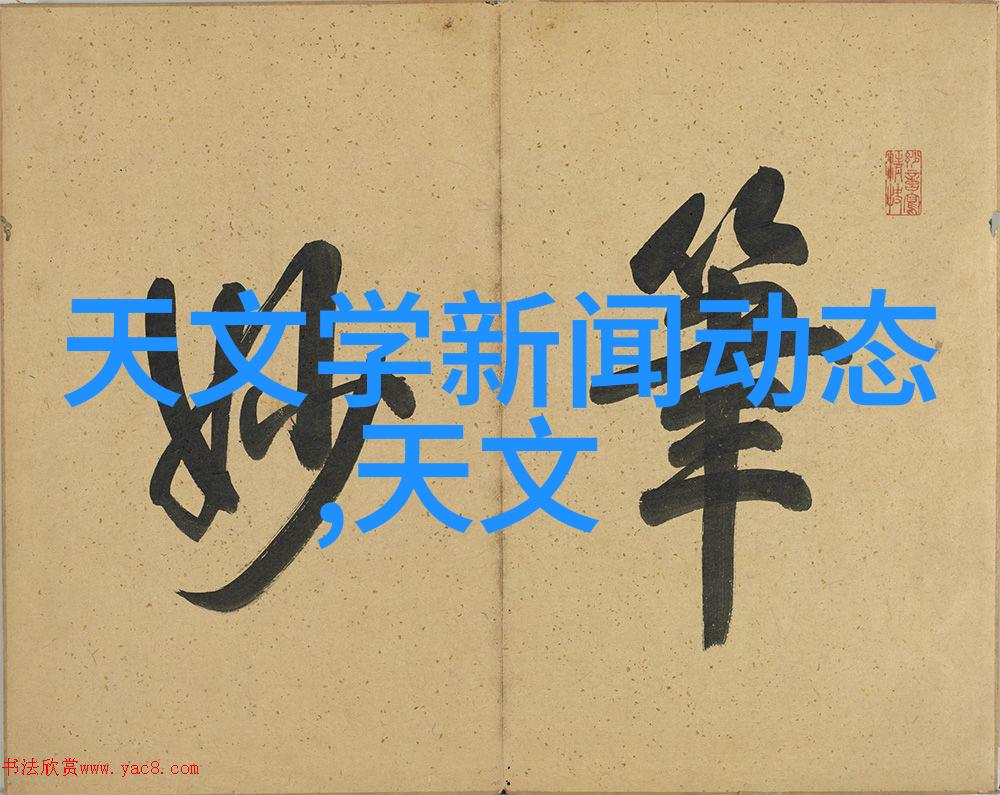 妙筆
天文学新闻动态
,天文
书法欣赏www.yac8.com